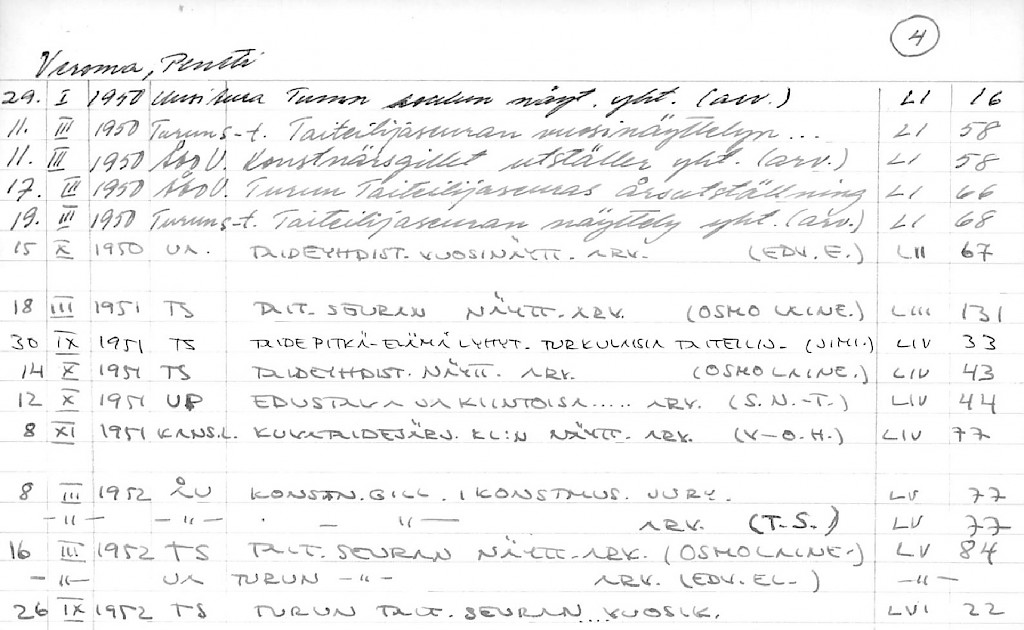 4
Veroma, Pentti
29. I 1950 Uusi Aura Turun koulun näyt. yht. (arv.) LI 16
11. III 1950 Turun s-t. Taiteilijaseuran vuosinäyttelyn... LI 58
11. III 1950 Åbo U. Konstnärsgillet utställer yht. (arv.) LI 58
17. III 1950 Åbo U. Turun Taiteilijaseuras årsutställning LI 66
19. III 1950 Turun s-t. Taiteilijaseuran näyttely yht. (arv.) LI 68
15 X 1950 UA. TAIDEYHDIST. VUOSINÄYTT. ARV. (EDV. E.) LII 67
18 III 1951 TS TAIT. SEURAN NÄYTT. ARV. (OSMO LAINE.) LIII 131
30 IX 1951 TS TAIDE PITKÄ-ELÄMÄ LYHYT. TURKULAISIA TAITEILIJ- (NIMI.) LIV 33
14 X 1951 TS TAIDEYHDIST. NÄYTT. ARV. (OSMO LAINE.) LIV 43
12 X 1951 UP EDUSTAVA JA KIINTOISA..... ARV. (S.N.-T.) LIV 44
8 XI 1951 KANS.L. KUVATAIDEJÄRJ. KL:N NÄYTT. ARV. (V-O.H.) LIV 77
8 III 1952 ÅU KONSTN. GILL. I KONSTMUS. JURY. LV 77
-"- -"- - "- ARV. (T.S.) LV 77
16 III 1952 TS TAIT. SEURAN NÄYTT. ARV. (OSMO LAINE.) LV 84
-"- UA TURUN -"- ARV. (EDV. EL-) -"-
26 IX 1952 TS TURUN TAIT. SEURAN.... VUOSIK. LVI 22